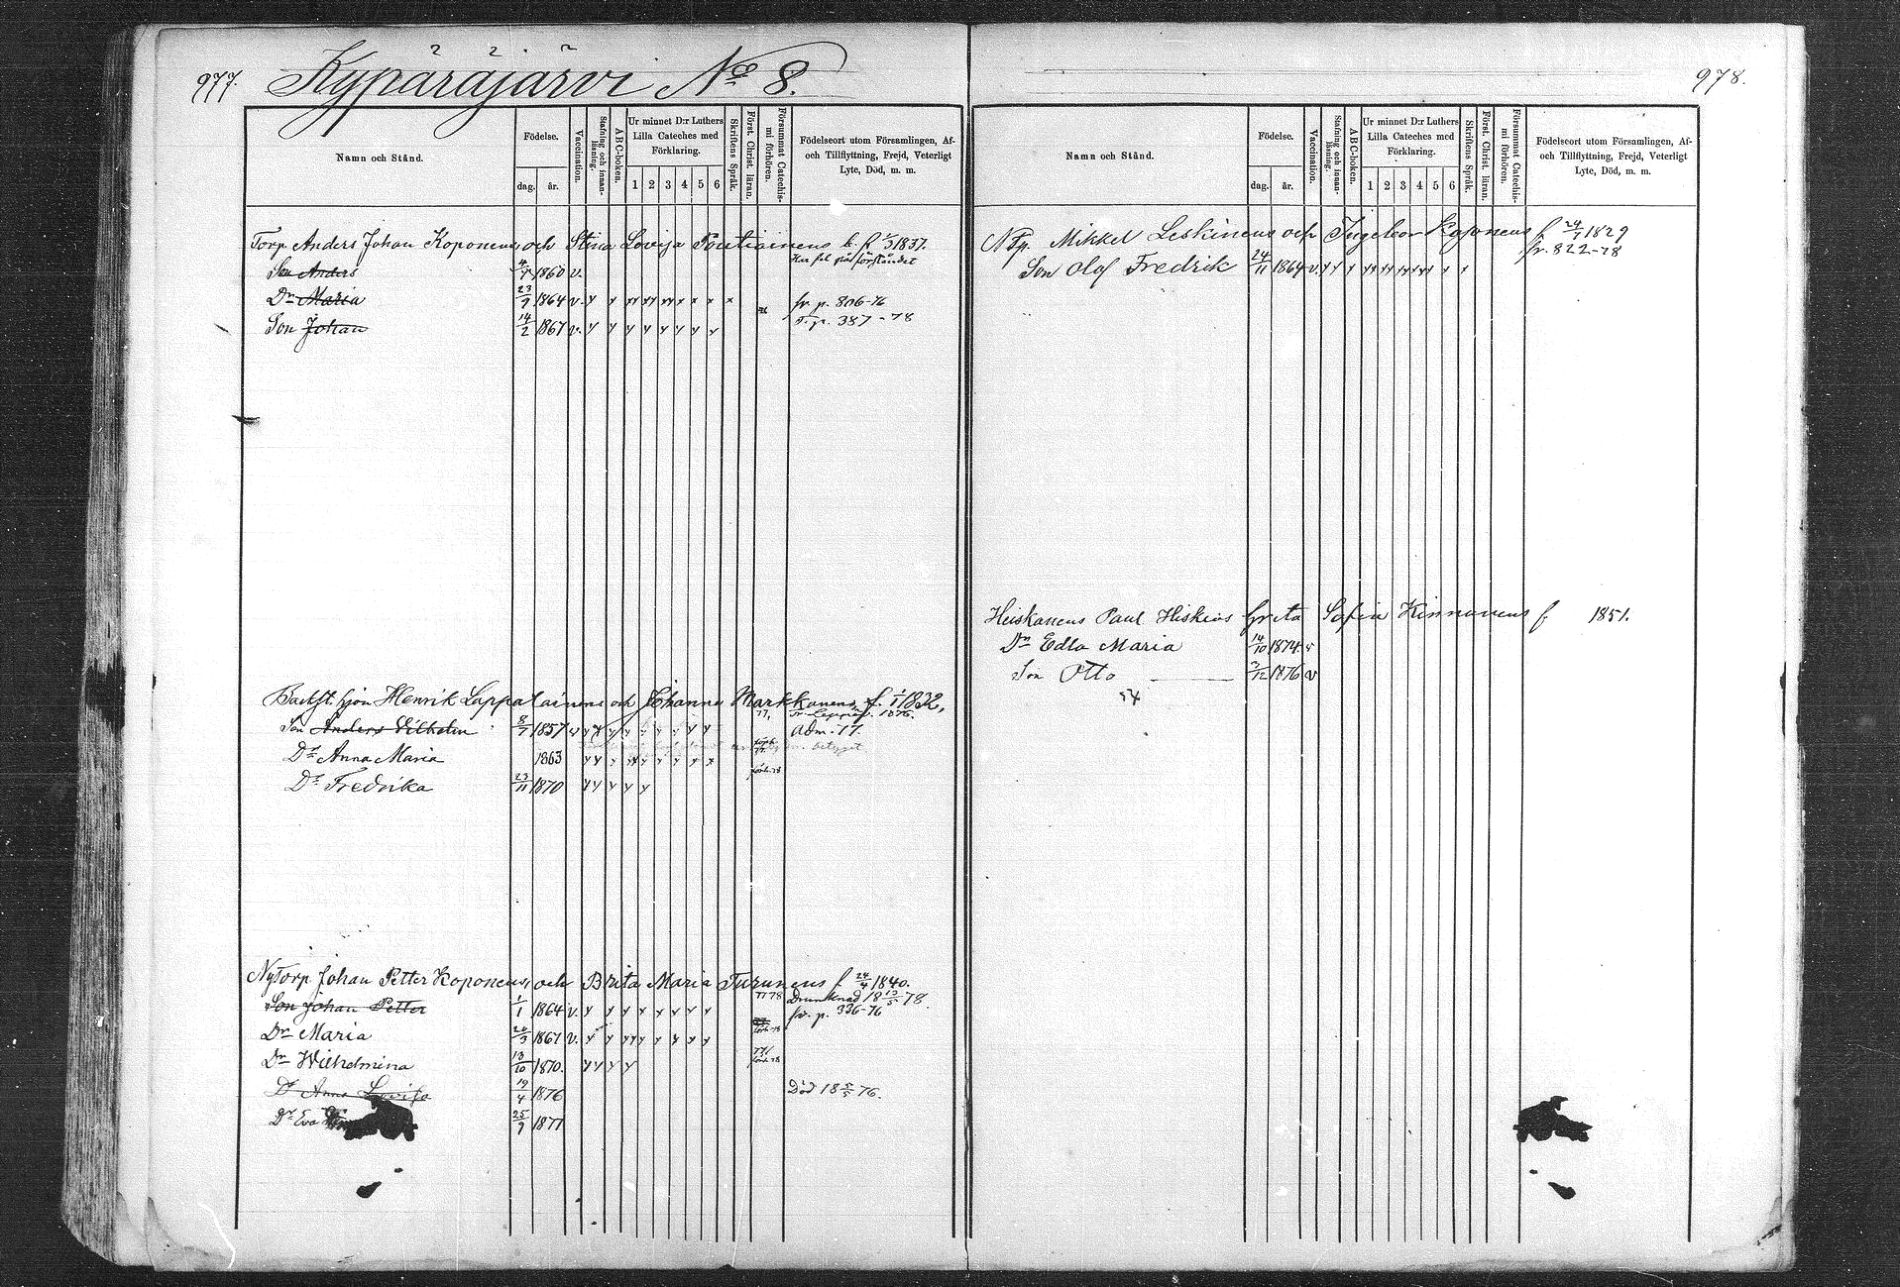 977.
Kypäräjärvi No 8.
Namn och Stånd.
Födelse.
dag.
år.
Vaccination.
Stafning och innanläsning.
A B C-boken.
Ur minnet D:r Luthers
Lilla Cateches med
Förklaring.
1 2 3 4 5 6
Skriftens Språk.
Först. Christ. läran.
Försummat Catechismi förhören.
Födelseort utom Församlingen, Af-
och Tillflyttning, Frejd, Veterligt
Lyte, Död, m. m.
Torp. Anders Johan Koponens och Stina Lovisa Pontiainens b. f. 1/3 1837.
Har fel på förståndet
Son Anders 1860 v.
Dr Maria 23/9 1864 v. fr. p. 806-76
Son Johan 14/2 1867 v. T. p. 387-78
Backst. hjon Henrik Lappalainens och Johanna Markkanens f. 1/1 1832.
Son Anders Vilhelm 8/7 1857 Adm. 77.
Dr Anna Maria 1863
Dr Fredrika 23/11 1870
NyTorp Johan Petter Koponens, och Brita Maria Turunens f 24/4 1840.
Son Johan Petter 1/1 1864 v. 77 78 Drunknad 18 13/5 78.
fr. p. 336-76
Dr Maria 26/3 1867 v.
Dr Wilhelmina 13/10 1870.
Dr Anna Lovisa 19/4 1876 Död 18 76.
Dr Eva 25/9 1877
978.
Namn och Stånd.
Födelse.
dag.
år.
Vaccination.
Stafning och innanläsning.
A B C-boken.
Ur minnet D:r Luthers
Lilla Cateches med
Förklaring.
1 2 3 4 5 6
Skriftens Språk.
Först. Christ. läran.
Försummat Catechismi förhören.
Födelseort utom Församlingen, Af-
och Tillflyttning, Frejd, Veterligt
Lyte, Död, m. m.
NTp. Mikkel Leskinens och Ingeborg Koponens f 24/7 1829
fr. 822-78
Son Olof Fredrik 24/11 1864 v.
Heiskanens Paul Hiskias Greta Sofia Kinnunens f. 1851.
Dr Edla Maria 14/10 1874. v
Son Otto 3/12 1876 v